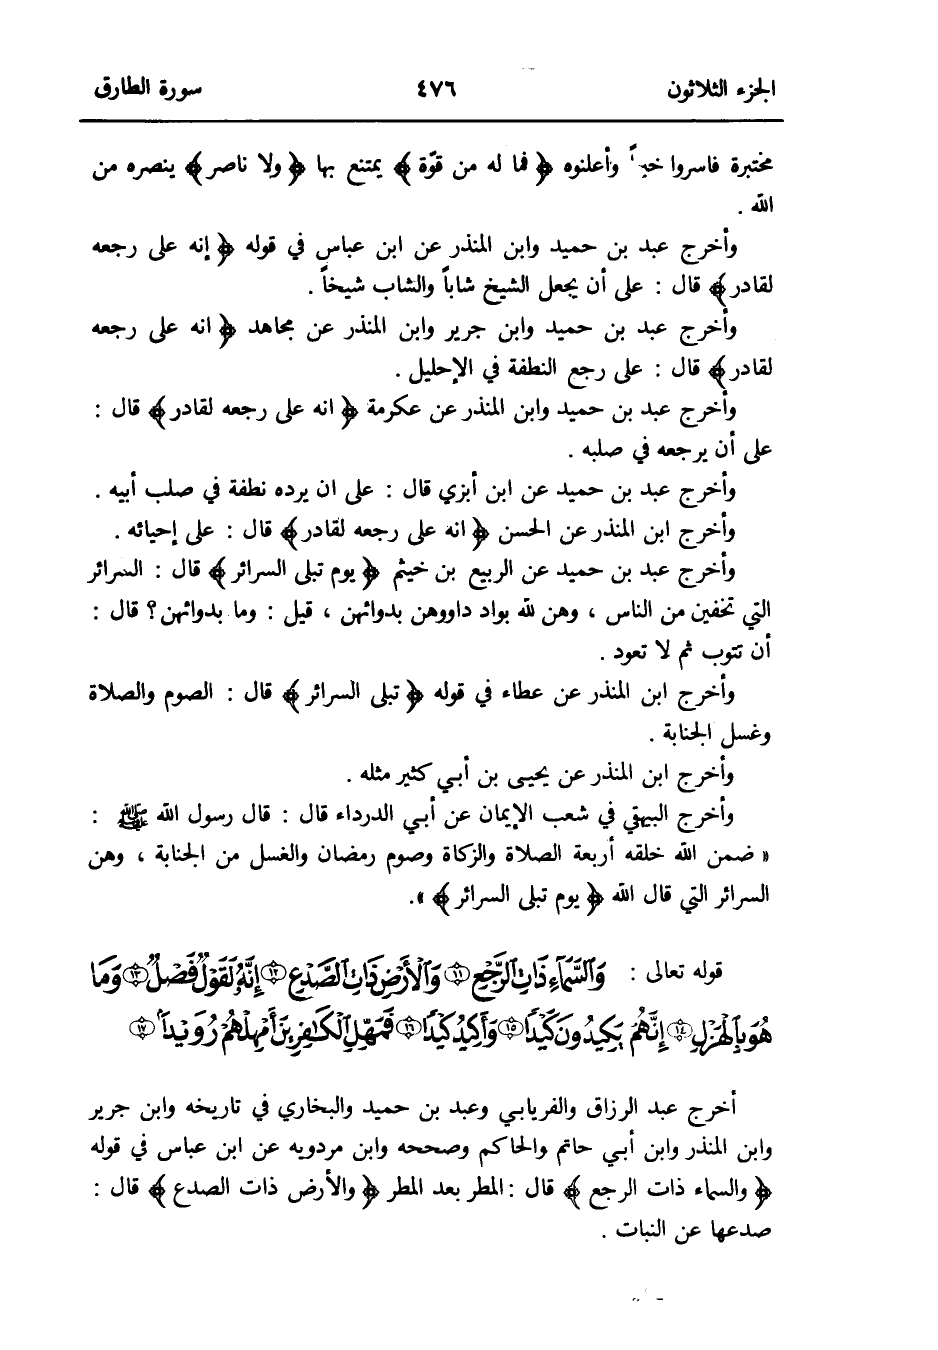 الجزء الثلاثون ٤٧٦ سورة الطارق
مختبرة فاسروا خيراً وأعلنوه ﴿ فما له من قوّة ﴾ يمتنع بها ﴿ ولا ناصر ﴾ ينصره من
الله .
وأخرج عبد بن حميد وابن المنذر عن ابن عباس في قوله ﴿ إنه على رجعه
لقادر ﴾ قال : على أن يجعل الشيخ شاباً والشاب شيخاً .
وأخرج عبد بن حميد وابن جرير وابن المنذر عن مجاهد ﴿ انه على رجعه
لقادر ﴾ قال : على رجع النطفة في الإحليل .
وأخرج عبد بن حميد وابن المنذر عن عكرمة ﴿ انه على رجعه لقادر ﴾ قال :
على أن يرجعه في صلبه .
وأخرج عبد بن حميد عن ابن أبزي قال : على ان يرده نطفة في صلب أبيه .
وأخرج ابن المنذر عن الحسن ﴿ انه على رجعه لقادر ﴾ قال : على إحيائه .
وأخرج عبد بن حميد عن الربيع بن خيثم ﴿ يوم تبلى السرائر ﴾ قال : السرائر
التي تخفين من الناس ، وهن لله بواد داووهن بدوائهن ، قيل : وما بدوائهن ؟ قال :
أن تتوب ثم لا تعود .
وأخرج ابن المنذر عن عطاء في قوله ﴿ تبلى السرائر ﴾ قال : الصوم والصلاة
وغسل الجنابة .
وأخرج ابن المنذر عن يحيى بن أبي كثير مثله .
وأخرج البيهقي في شعب الإيمان عن أبي الدرداء قال : قال رسول الله ﷺ :
« ضمن الله خلقه أربعة الصلاة والزكاة وصوم رمضان والغسل من الجنابة ، وهن
السرائر التي قال الله ﴿ يوم تبلى السرائر ﴾ ».
قوله تعالى : وَالسَّمَآءِ ذَاتِ الرَّجْعِ ١١ وَالْأَرْضِ ذَاتِ الصَّدْعِ ١٢ إِنَّهُۥ لَقَوْلٌ فَصْلٌ ١٣ وَمَا
هُوَ بِالْهَزْلِ ١٤ إِنَّهُمْ يَكِيدُونَ كَيْدًا ١٥ وَأَكِيدُ كَيْدًا ١٦ فَمَهِّلِ الْكَٰفِرِينَ أَمْهِلْهُمْ رُوَيْدًا ١٧
أخرج عبد الرزاق والفريابي وعبد بن حميد والبخاري في تاريخه وابن جرير
وابن المنذر وابن أبي حاتم والحاكم وصححه وابن مردويه عن ابن عباس في قوله
﴿ والسماء ذات الرجع ﴾ قال : المطر بعد المطر ﴿ والأرض ذات الصدع ﴾ قال :
صدعها عن النبات .